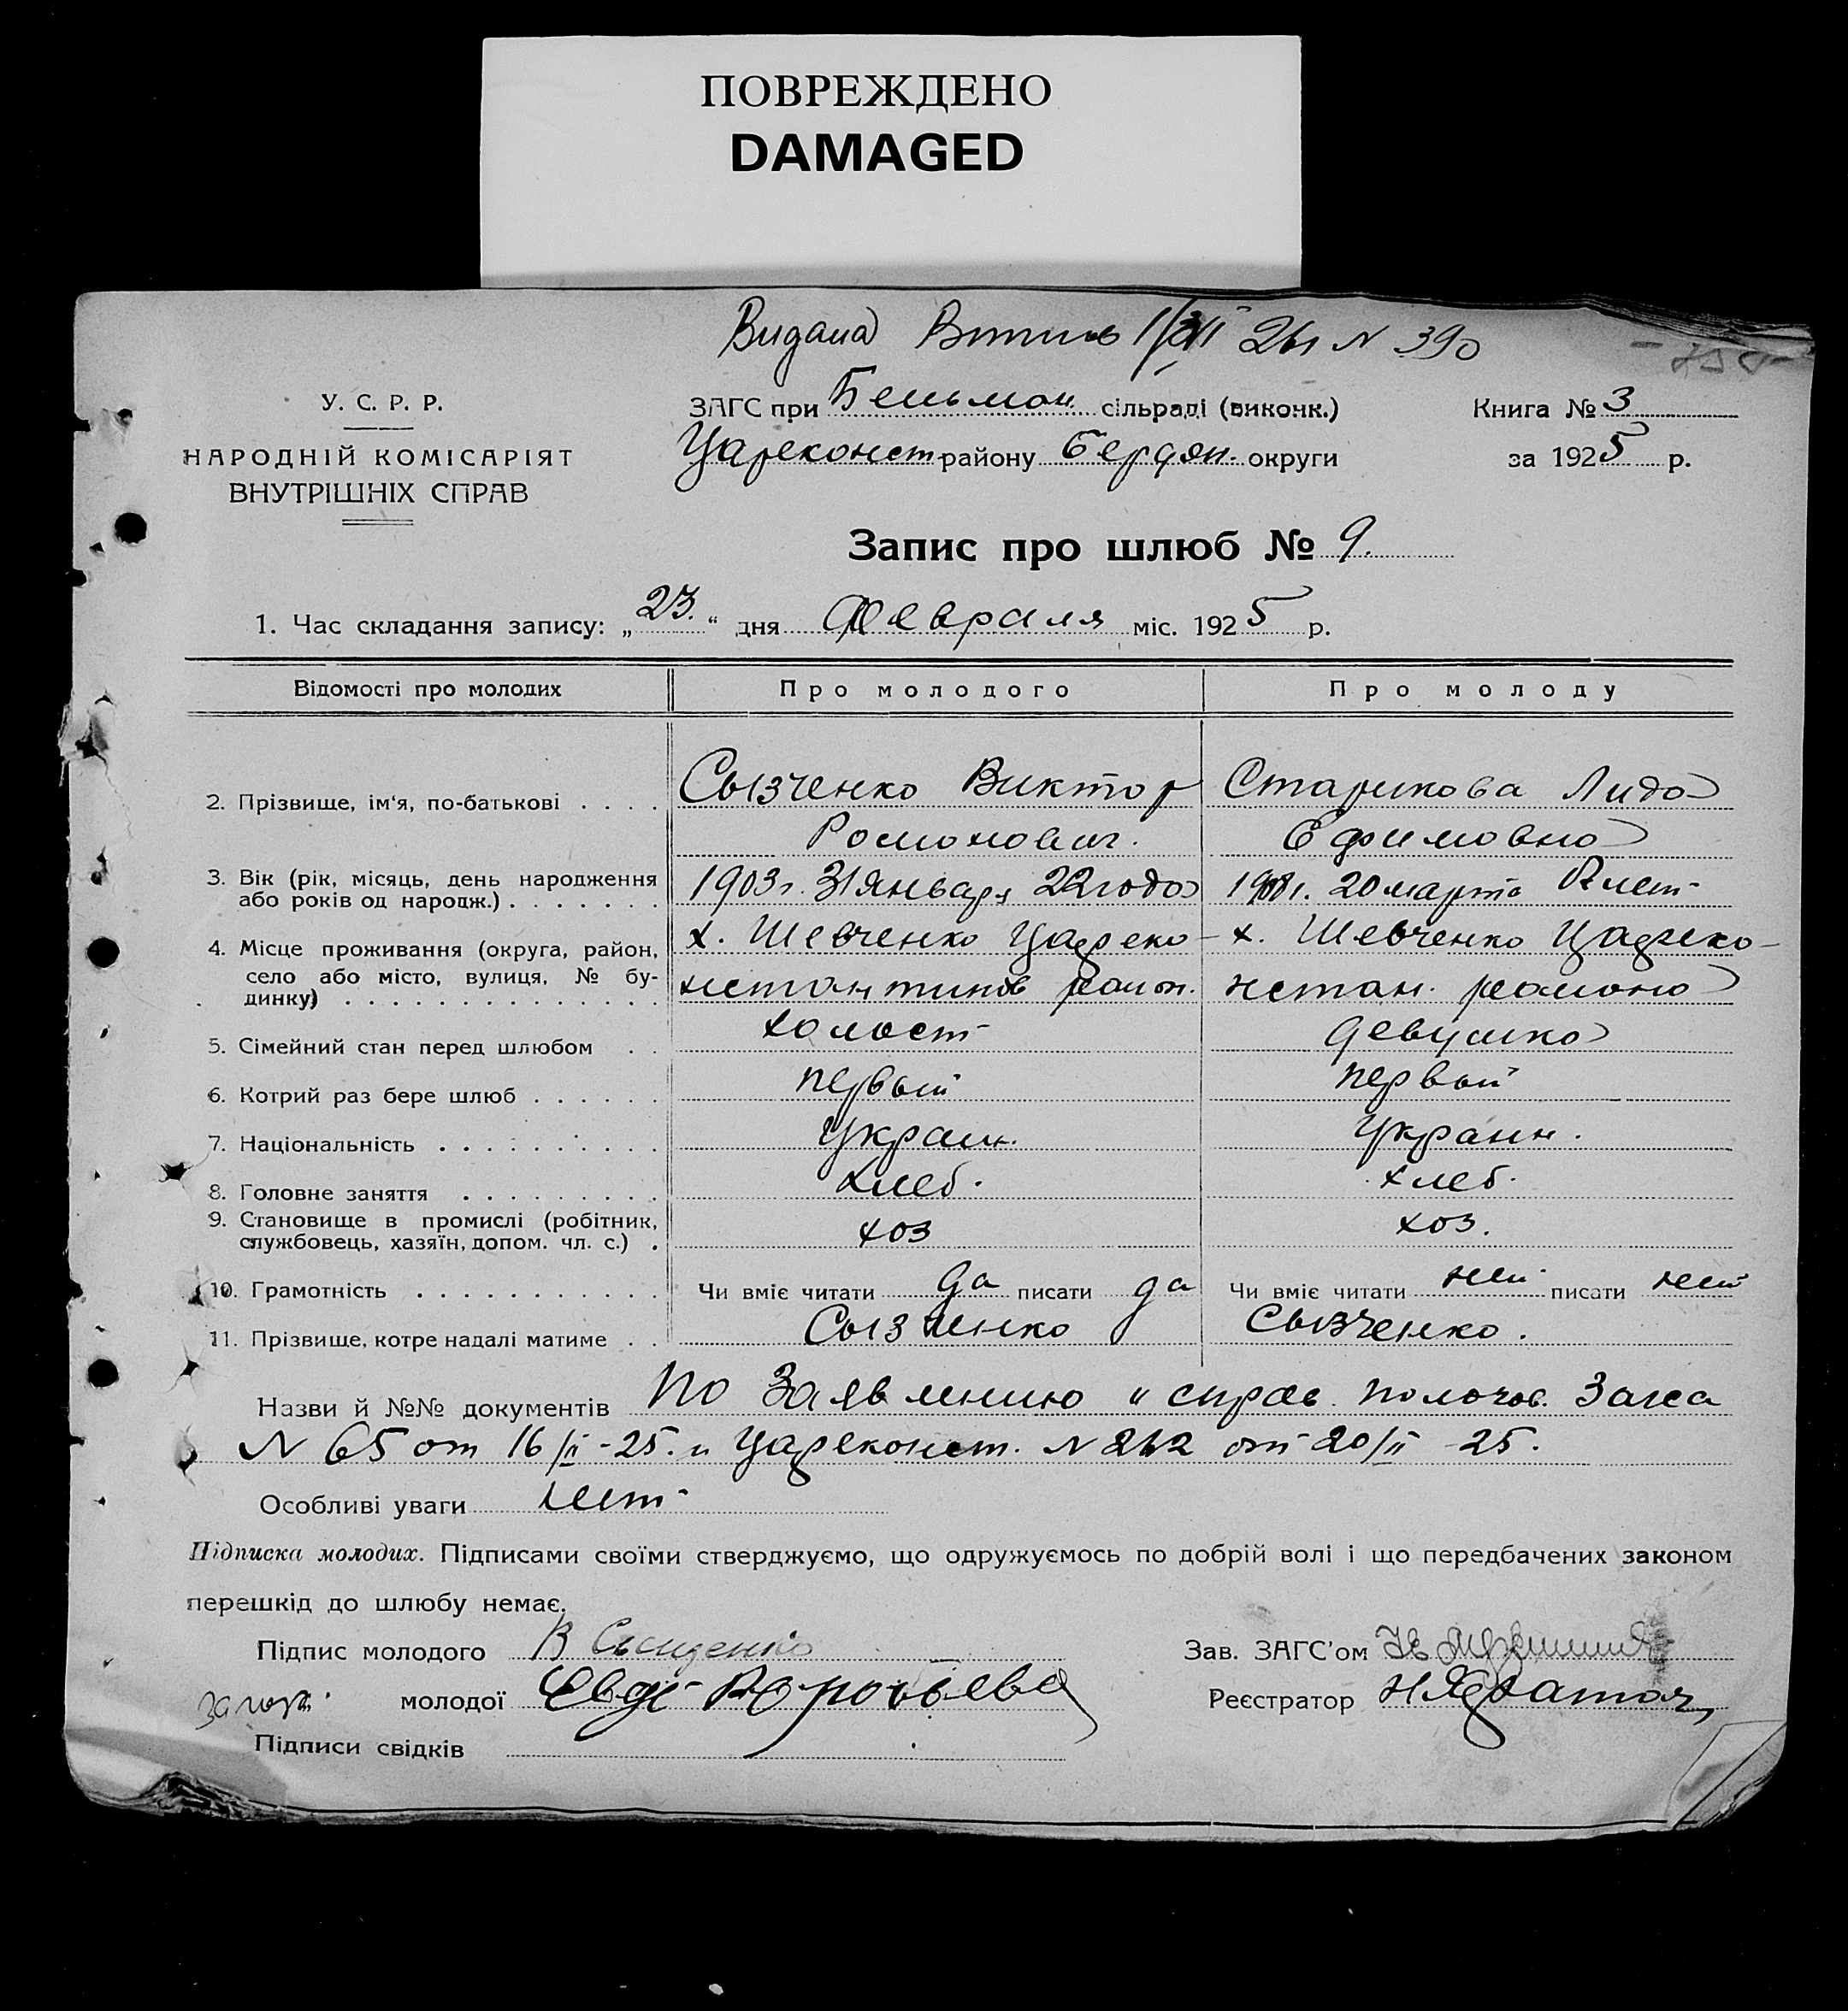 ПОВРЕЖДЕНО
DAMAGED
Видана 26 N 390
У. С. Р. Р.
НАРОДНІЙ КОМІСАРІЯТ
ВНУТРІШНІХ СПРАВ
ЗАГС при Бельман. сільраді (виконк.)
Книга № 3
Цареконст. району Бердян. округи
за 1925 р.
Запис про шлюб № 9.
1. Час складання запису: „23.“ дня Февраля міс. 1925 р.
Відомості про молодих
Про молодого
Про молоду
2. Прізвище, ім‘я, по-батькові
Сызченко Виктор
Романович.
Старикова Лида
Ефимовна
3. Вік (рік, місяць, день народження
або років од народж.)
1903г. 31 Января 22 года
1908г. 20 марта лет
4. Місце проживання (округа, район,
село або місто, вулиця, № бу-
динку)
х. Шевченко Цареко-
нстантинов район.
х. Шевченко Цареко-
нстан. района
5. Сімейний стан перед шлюбом
холост
девушка
6. Котрий раз бере шлюб
первый
первый
7. Національність
Украин.
Украин.
8. Головне заняття
Хлеб.
хлеб.
9. Становище в промислі (робітник,
службовець, хазяїн, допом. чл. с.)
хоз
хоз.
10. Грамотність
Чи вміє читати да писати да
Чи вміє читати нет писати нет
11. Прізвище, котре надалі матиме
Сызченко
Сызченко.
Назви й №№ документів По Заявлению и справ. Полочов. Загса
N 65 от 16/II-25. и Цареконст. N 212 от 20/II-25.
Особливі уваги нет
Підписка молодих. Підписами своїми стверджуємо, що одружуємось по добрій волі і що передбачених законом
перешкід до шлюбу немає.
Підпис молодого В
Зав. ЗАГС'ом
молодої Воробьева
Реєстратор
Підписи свідків